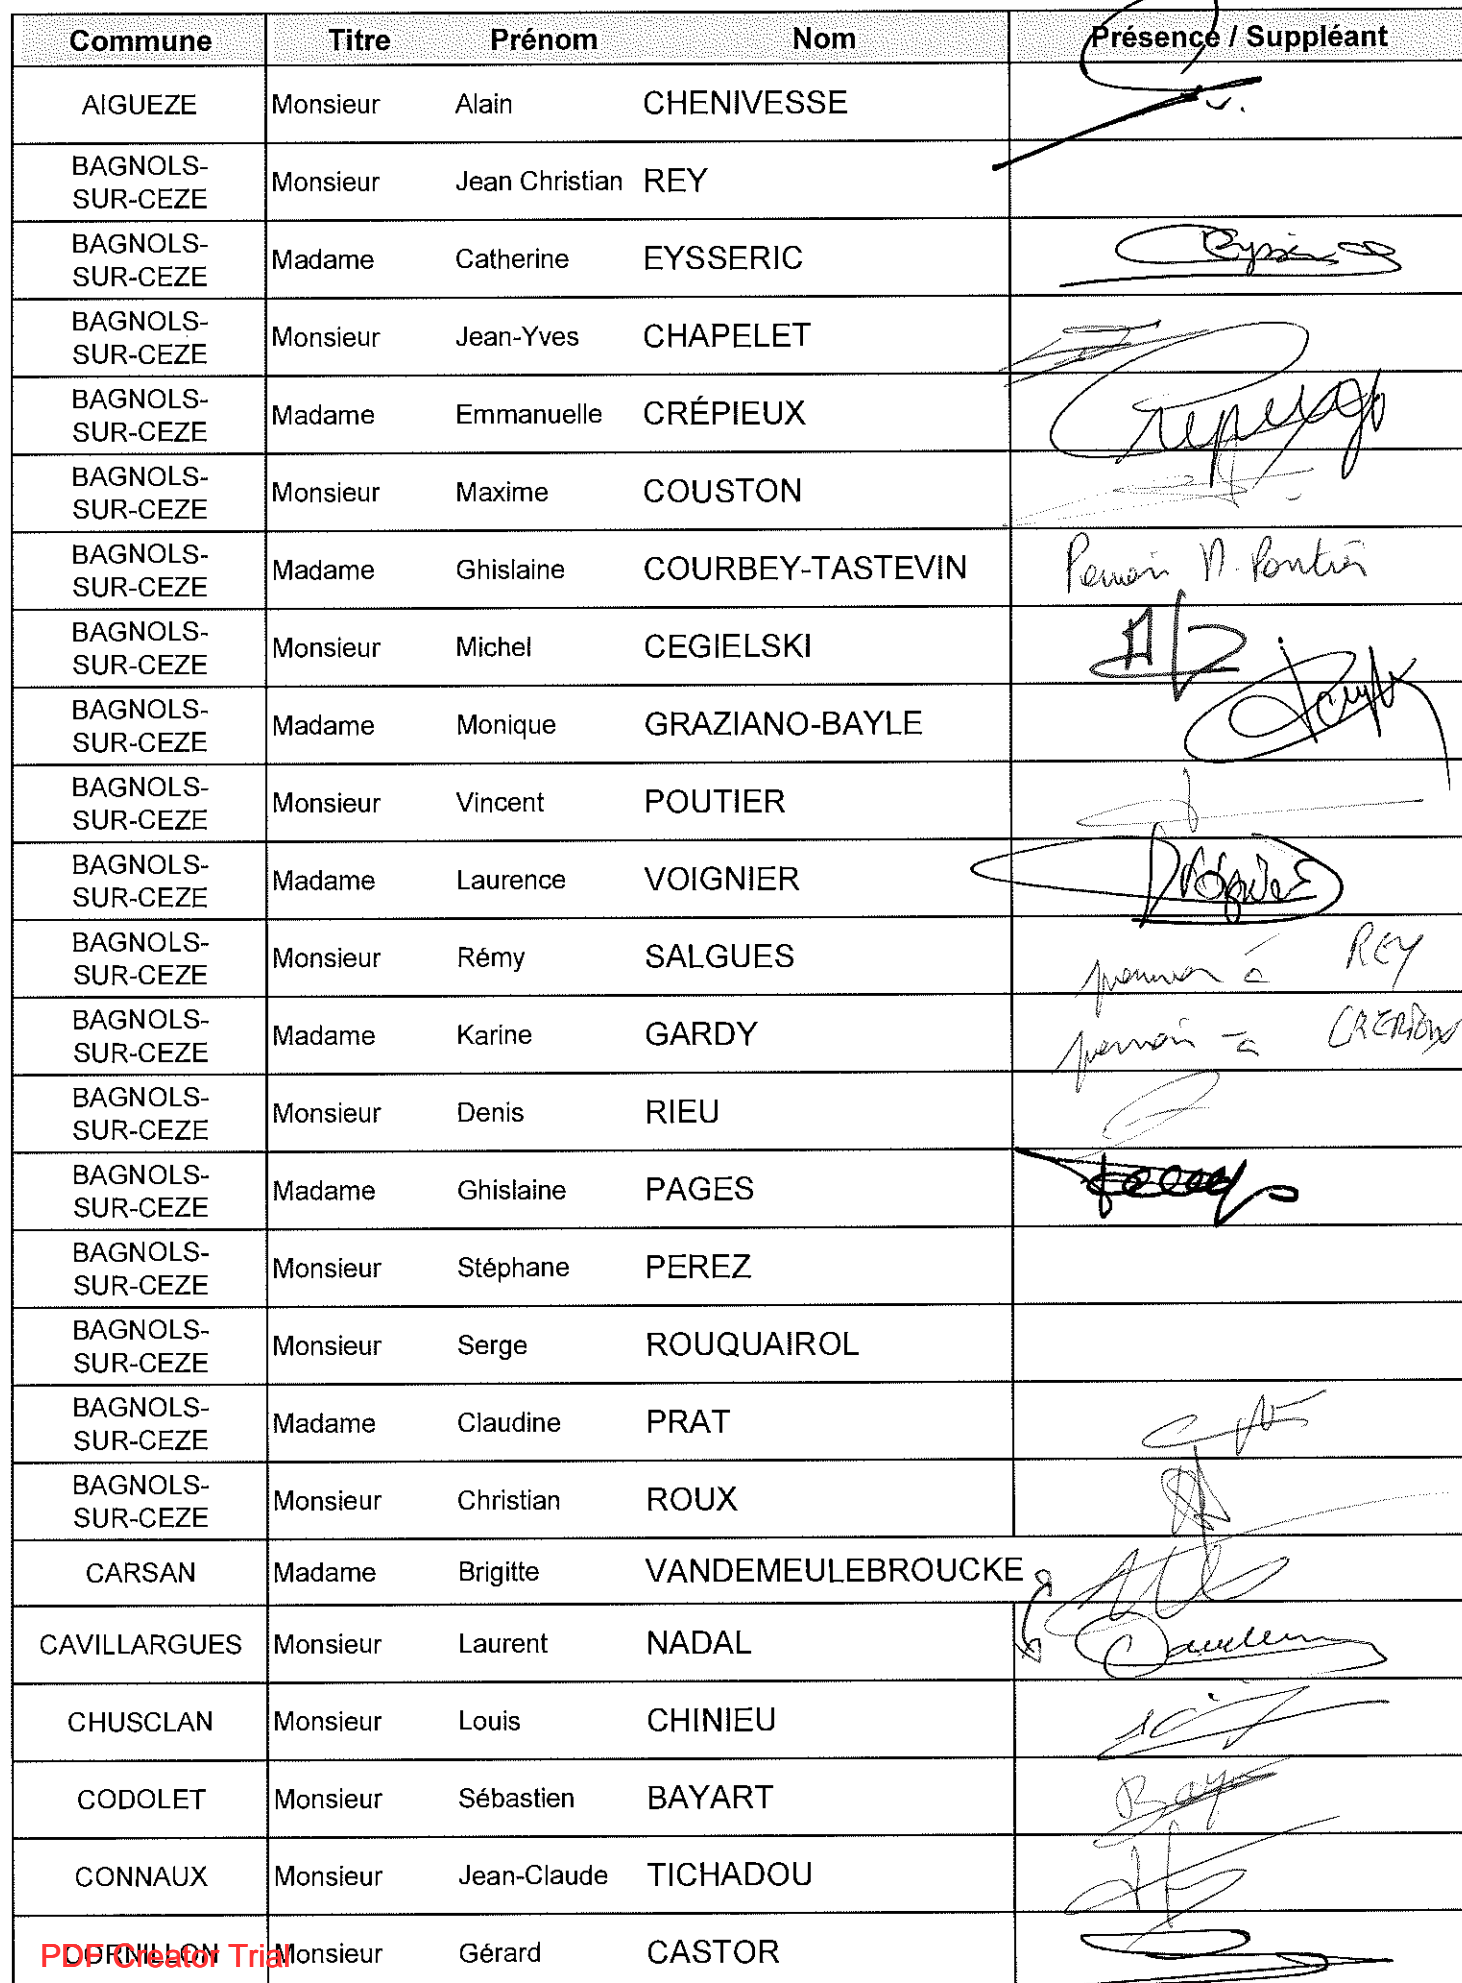 Commune Titre Prénom Nom Présence / Suppléant
AIGUEZE Monsieur Alain CHENIVESSE
BAGNOLS-
SUR-CEZE Monsieur Jean Christian REY
BAGNOLS-
SUR-CEZE Madame Catherine EYSSERIC
BAGNOLS-
SUR-CEZE Monsieur Jean-Yves CHAPELET
BAGNOLS-
SUR-CEZE Madame Emmanuelle CRÉPIEUX
BAGNOLS-
SUR-CEZE Monsieur Maxime COUSTON
BAGNOLS-
SUR-CEZE Madame Ghislaine COURBEY-TASTEVIN
BAGNOLS-
SUR-CEZE Monsieur Michel CEGIELSKI
BAGNOLS-
SUR-CEZE Madame Monique GRAZIANO-BAYLE
BAGNOLS-
SUR-CEZE Monsieur Vincent POUTIER
BAGNOLS-
SUR-CEZE Madame Laurence VOIGNIER
BAGNOLS-
SUR-CEZE Monsieur Rémy SALGUES à REY
BAGNOLS-
SUR-CEZE Madame Karine GARDY à
BAGNOLS-
SUR-CEZE Monsieur Denis RIEU
BAGNOLS-
SUR-CEZE Madame Ghislaine PAGES
BAGNOLS-
SUR-CEZE Monsieur Stéphane PEREZ
BAGNOLS-
SUR-CEZE Monsieur Serge ROUQUAIROL
BAGNOLS-
SUR-CEZE Madame Claudine PRAT
BAGNOLS-
SUR-CEZE Monsieur Christian ROUX
CARSAN Madame Brigitte VANDEMEULEBROUCKE
CAVILLARGUES Monsieur Laurent NADAL
CHUSCLAN Monsieur Louis CHINIEU
CODOLET Monsieur Sébastien BAYART
CONNAUX Monsieur Jean-Claude TICHADOU
CORNILLON Monsieur Gérard CASTOR
PDF Creator Trial